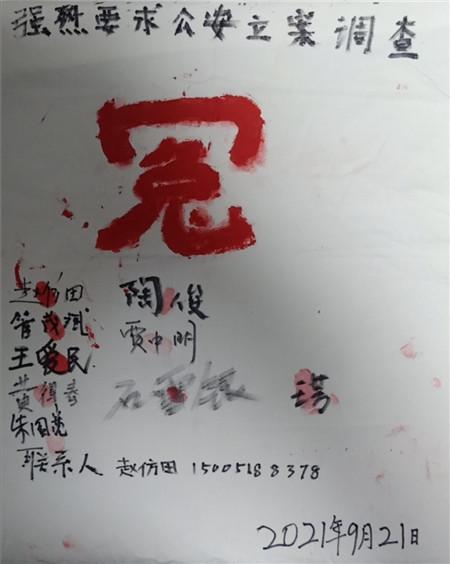 强烈要求公安立案调查
冤
赵仿田 陶俊
管茂斌 贾中明
王爱民
石雪 诺
黄得寿
朱国亮
联系人 赵仿田 15005188378
2021年9月21日